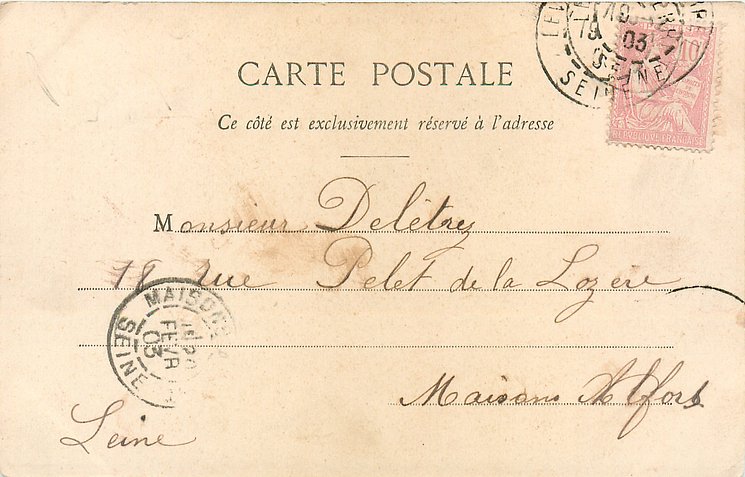 CARTE POSTALE
Ce côté est exclusivement réservé à l'adresse
10
RÉPUBLIQUE FRANÇAISE
19
03
SEINE
SEINE
Monsieur Delétrez
18 rue Pelet de la Lozère
MAISONS
FEVR
03
SEINE
Maisons Alfort
Seine